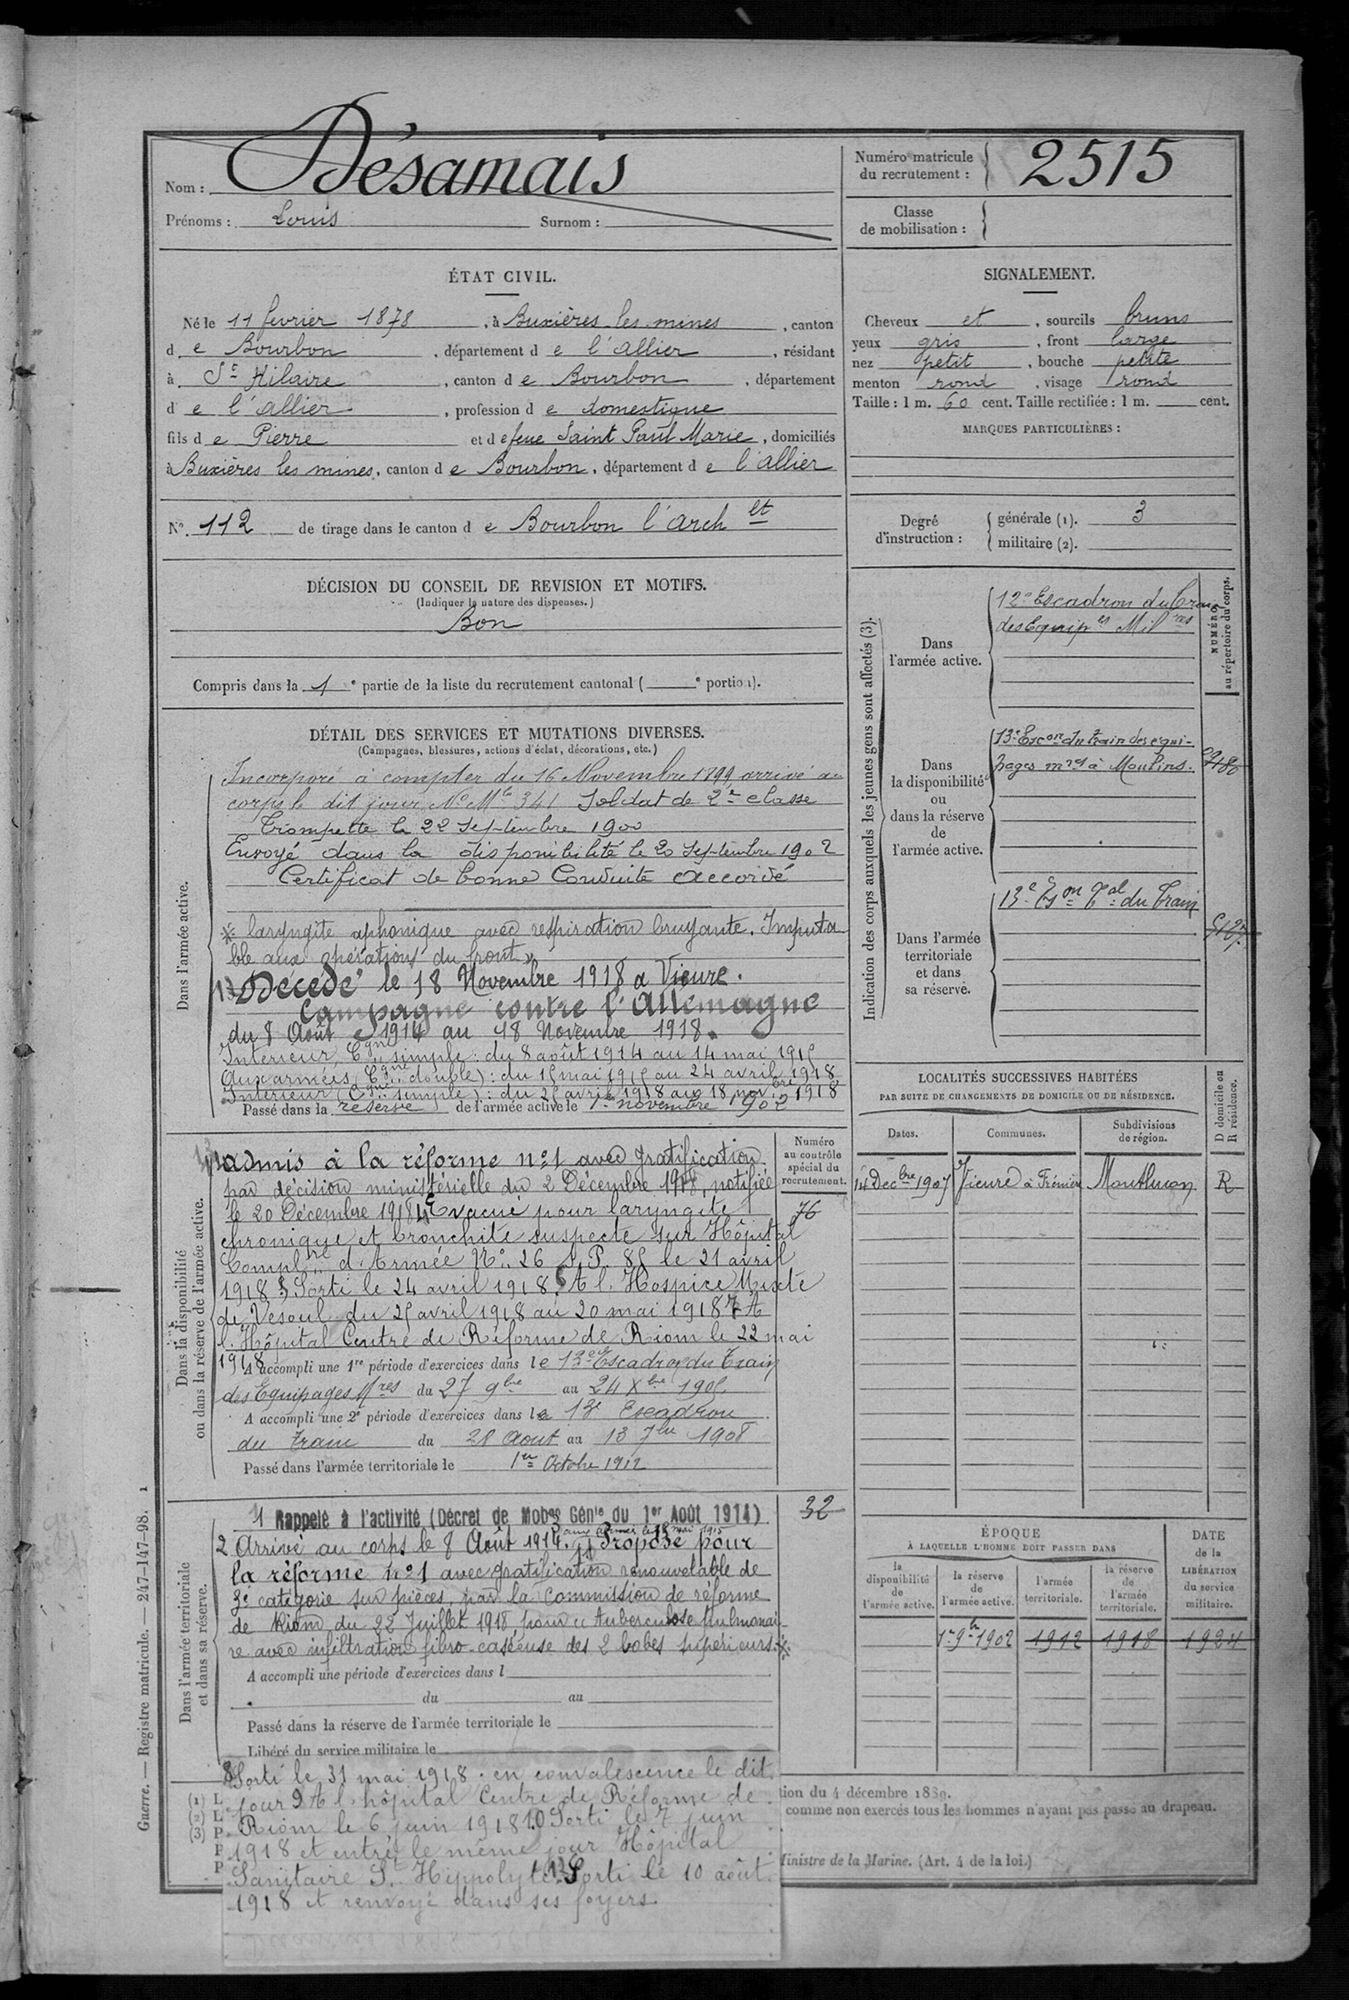 Nom : Désamais
Prénoms : Louis Surnom :
Numéro matricule du recrutement : 2515
Classe de mobilisation :
ÉTAT CIVIL.
Né le 11 fevrier 1878, à Buxières les mines, canton
d e Bourbon, département d e l'Allier, résidant
à St Hilaire, canton d e Bourbon, département
d e l'Allier, profession d e domestique
fils d e Pierre et d e feue Saint Paul Marie, domiciliés
à Buxières les mines, canton d e Bourbon, département d e l'Allier
N°. 112 de tirage dans le canton d e Bourbon l'Arch lt
SIGNALEMENT.
Cheveux et, sourcils bruns
yeux gris, front large
nez petit, bouche petite
menton rond, visage rond
Taille : 1 m. 60 cent. Taille rectifiée : 1 m. cent.
MARQUES PARTICULIÈRES :
Degré d'instruction : générale (1). 3
militaire (2).
DÉCISION DU CONSEIL DE REVISION ET MOTIFS.
(Indiquer la nature des dispenses.)
Bon
Compris dans la 1 e partie de la liste du recrutement cantonal ( e portion).
DÉTAIL DES SERVICES ET MUTATIONS DIVERSES.
(Campagnes, blessures, actions d'éclat, décorations, etc.)
Dans l'armée active.
Incorporé à compter du 16 Novembre 1899 arrivé au
corps le dit jour No Mle 341 Soldat de 2e classe
Trompette le 22 Septembre 1900
Envoyé dans la disponibilité le 20 Septembre 1902
Certificat de bonne Conduite accordé
* laryngite aphonique avec respiration bruyante. Imputa
ble aux opérations du front »
13 Décédé le 18 Novembre 1918 à Vieure.
Campagne contre l'Allemagne
du 8 Août 1914 au 18 Novembre 1918.
Intérieur Cgne simple : du 8 août 1914 au 14 mai 1915
Aux armées (Cgne double) : du 15 mai 1915 au 24 avril 1918
Intérieur (Cgne simple) : du 25 avril 1918 au 18 novbre 1918
Passé dans la réserve de l'armée active le 1er novembre 1902
Dans la disponibilité
ou dans la réserve de l'armée active.
Numéro au contrôle spécial du recrutement.
76
admis à la réforme n°1 avec gratification
par décision ministérielle du 2 Décembre 1918, notifiée
le 20 Décembre 1918 4 Evacué pour laryngite
chronique et bronchite suspecte sur Hôpital
Complre d'Armée No 26 S.P. 85 le 21 avril
1918 5 Sorti le 24 avril 1918 6 A l'Hospice Mixte
de Vesoul du 25 avril 1918 au 20 mai 1918 7 A
l'Hôpital Centre de Réforme de Riom le 22 mai
1918
A accompli une 1re période d'exercices dans l e 13e Escadron du Train
des Equipages Mres du 27 9bre au 24 Xbre 1905
A accompli une 2e période d'exercices dans l e 13e Escadron
du train du 28 Aout au 13 7bre 1908
Passé dans l'armée territoriale le 1er Octobre 1912
Dans l'armée territoriale
et dans sa réserve.
32
1 Rappelé à l'activité (Décret de Mobon Génle du 1er Août 1914)
2 Arrivé au corps le 8 Août 1914. 3 aux armées le 15 mai 1915 11 Proposé pour
la réforme n°1 avec gratification renouvelable de
3e catégorie sur pièces, par la Commission de réforme
de Riom du 22 Juillet 1918 pour « Tuberculose pulmonai-
re avec infiltration fibro-caséeuse des 2 lobes supérieurs. *
A accompli une période d'exercices dans l
du au
Passé dans la réserve de l'armée territoriale le
Libéré du service militaire le
8 Sorti le 31 mai 1918 en convalescence le dit
jour 9 A l'hôpital Centre de Réforme de
Riom le 6 juin 1918 10 Sorti le 7 juin
1918 et entré le même jour Hôpital
Sanitaire St Hippolyte 12 Sorti le 10 août
1918 et renvoyé dans ses foyers.
Indication des corps auxquels les jeunes gens sont affectés (3).
NUMÉRO au répertoire du corps.
Dans l'armée active.
12e Escadron du Train
des Equipes Milres
Dans la disponibilité ou dans la réserve de l'armée active.
13e Escon du train des équi-
pages mres à Moulins.
Dans l'armée territoriale et dans sa réserve.
13e Eson Tal du Train
LOCALITÉS SUCCESSIVES HABITÉES
PAR SUITE DE CHANGEMENTS DE DOMICILE OU DE RÉSIDENCE.
D domicile ou R résidence.
Dates. Communes. Subdivisions de région.
14 Décbre 1907 Vieure à Frémière Montluçon R
ÉPOQUE
À LAQUELLE L'HOMME DOIT PASSER DANS
DATE de la LIBÉRATION du service militaire.
la disponibilité de l'armée active.
la réserve de l'armée active.
l'armée territoriale.
la réserve de l'armée territoriale.
1er 9bre 1902 1912 1918 1924
tion du 4 décembre 1889.
comme non exercés tous les hommes n'ayant pas passé au drapeau.
Ministre de la Marine. (Art. 4 de la loi.)
(1) L
(2) L
(3) P
Guerre. — Registre matricule. — 247-147-98. 1